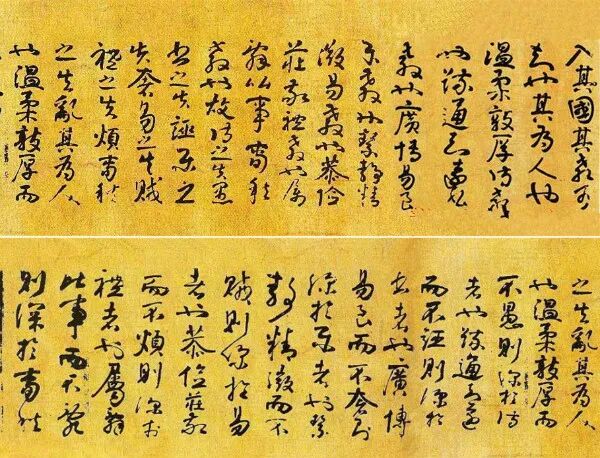 入其國其教可
知也其為人也
溫柔敦厚詩教
也疏通知遠書
教也廣博易良
樂教也絜靜精
微易教也恭儉
莊敬禮教也屬
辭比事春秋
教也故詩之失愚
書之失誣樂之
失奢易之失賊
禮之失煩春秋
之失亂其為人
也溫柔敦厚而
之失亂其為人
也溫柔敦厚而
不愚則深於詩
者也疏通知遠
而不誣則深於
書者也廣博
易良而不奢則
深於樂者也絜
靜精微而不
賊則深於易
者也恭儉莊敬
而不煩則深於
禮者也屬辭
比事而不亂
則深於春秋